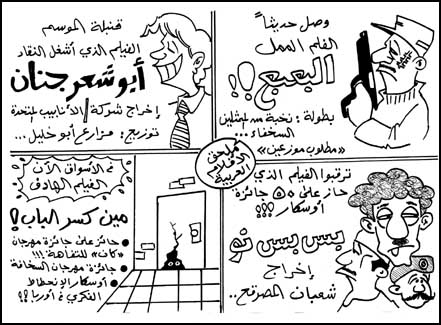 وصل حديثاً
الفلم الممل
البعبع !!
بطولة : نخبة من الممثلين
السخفاء ...
«مطلوب موزعين»
قنبلة الموسم
الفيلم الذي أشغل النقاد
أبو شعر جنان
إخراج شركة / الأنابيب المتحدة
توزيع : مزارع أبو خليل ...
ملحق
الأفلام
العربية
ترقبوا الفيلم الذي
حاز على ٥٥ جائزة
أوسكار !!!
بس بس تو
إخراج
شعبان المصرقع ..
في الأسواق الآن
الفيلم الهادف
مين كسر الباب ؟!
● حائز على جائزة مهرجان
«كاف» للتفاهة !!!
● جائزة مهرجان السخافة
● أوسكار الإنحطاط
الفكري في أوربا !!؟